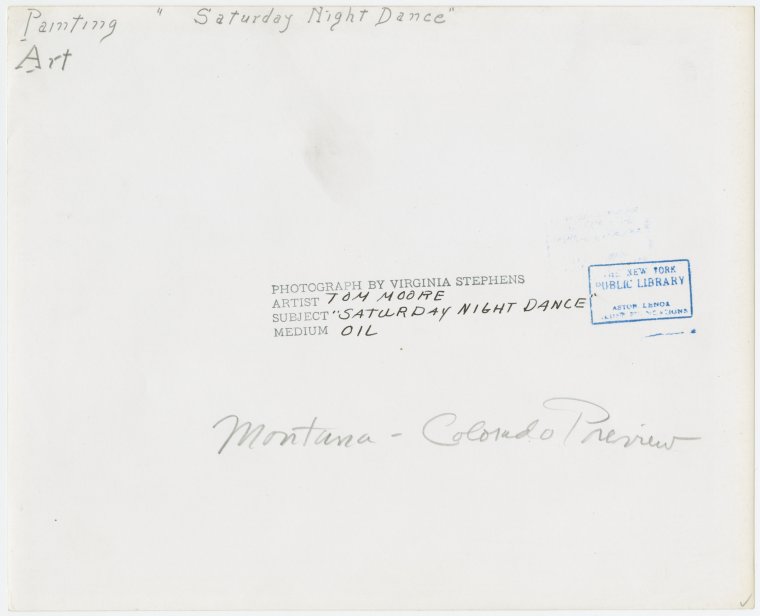 Painting " Saturday Night Dance"
Art
PHOTOGRAPH BY VIRGINIA STEPHENS
ARTIST TOM MOORE
SUBJECT "SATURDAY NIGHT DANCE"
MEDIUM OIL
THE NEW YORK
PUBLIC LIBRARY
ASTOR LENOX
Montana - Colorado Preview